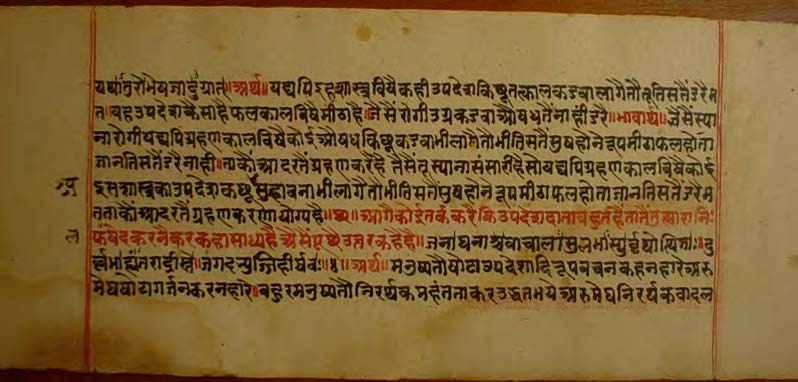 यथातुरोभेषजादुग्रात॥अर्थ॥यद्यपिइहशास्त्रविषैकहीउपदेशकिछूतत्कालकडवालागैतौतूतिसतैंडरैम
त॥यहउपदेशकैसाहैफलकालविषैमीठाहै॥जैसैंरोगीउग्रकडवाऔषधतैंनाहींडरै॥भावार्थ॥जैसैंस्या
नारोगीयद्यपिग्रहणकालविषैकोईऔषधकिछूकडवाभीलागैतौभीतिसतैंसुषहोनेरूपमीठाफलहोता
जानतिसतैंडरैनाहीं॥ताकोंआदरतैंग्रहणकरैहैतैसैंतूस्यानासंसारीहैसोयद्यपिग्रहणकालविषैकोई
इसशास्त्रकाउपदेशकछूअसुहावनाभीलागैतौभीतिसतैंसुषहोनेरूपमीठाफलहोताजानतिसतैंडरैम
तताकोंआदरतैंग्रहणकरणायोग्यहै॥आगैकोईतर्ककरैकिउपदेशदाताबहुतहैंतातैंतुम्हारानिः
फलषेदकरनैकरकहासाध्यहैऔसैंपूछैउत्तरकहैहै॥जनाघनाश्चवाचालाःसुलभाःस्युर्वृथोत्थिताः॥दु
र्लभाह्यंतरार्द्रास्ते॥जगदभ्युज्जिहीर्षवः॥४॥अर्थ॥मनुष्यतौषोटाउपदेशादिरूपवचनकहनहारेअरु
मेघषोटागर्जनकरनहारे॥बहुरमनुष्यतौनिरर्थकमहंतताकरउद्धतभयेअरुमेघनिरर्थकवादल